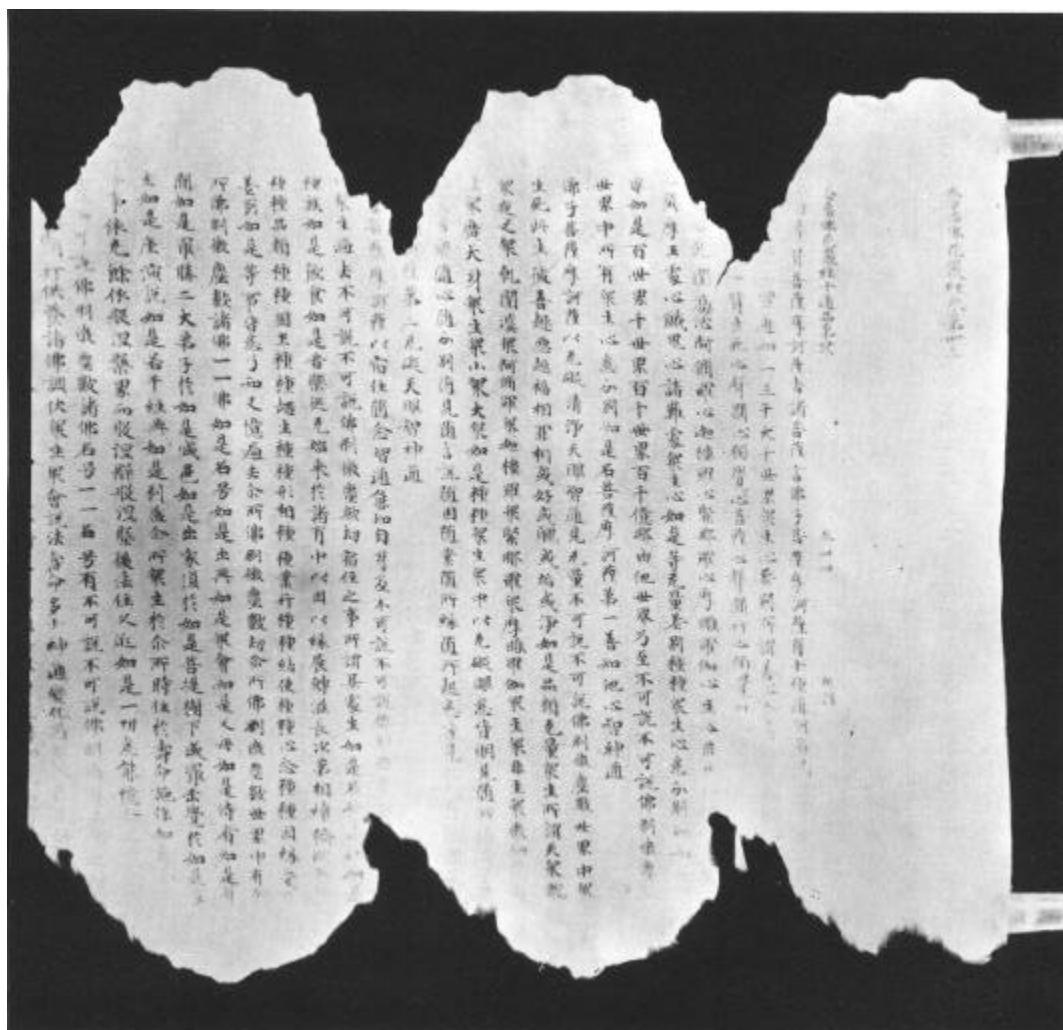 大方廣佛花嚴經十通品第廿八
時普賢菩薩摩訶薩告諸菩薩言佛子菩薩摩訶薩有十種通何者
知一三千大千世界眾生心差別所謂善心
背生死心聲聞心獨覺心菩薩心聲聞行心獨覺行心
乾闥婆心阿脩羅心迦樓羅心緊那羅心摩睺羅伽心人心非人
閻摩王處心餓鬼心諸難處眾生心如是等無量差別種種眾生心悉分別
界如是百世界千世界百千世界百千億那由他世界乃至不可說不可說佛剎微塵
世界中所有眾生心悉分別知是名菩薩摩訶薩第一善知他心智神通
佛子菩薩摩訶薩以無礙清淨天眼智通見無量不可說不可說佛剎微塵數世界中眾
生死此生彼善趣惡趣福相罪相或好或醜或垢或淨如是品類無量眾生所謂天眾龍
眾夜叉眾乾闥婆眾阿脩羅眾迦樓羅眾緊那羅眾摩睺羅伽眾人眾非人眾微細
眾廣大身眾生眾小眾大眾如是種種眾生眾中以無礙眼悉皆明見隨所
隨心隨分別隨見隨言說隨因隨業隨所緣隨所起悉皆見
薩第二無礙天眼智神通
菩薩摩訶薩以宿住隨念智通能知自身及不可說不可說佛剎
眾生過去不可說不可說佛剎微塵數劫宿住之事所謂某處生如是名
種族如是飲食如是苦樂從無始來於諸有中以因以緣展轉滋長次第相續輪
種種品類種種國土種種趣生種種形相種種業行種種結使種種心念種種因緣受
差別如是等事皆悉了知又憶過去尒所佛剎微塵數劫尒所佛剎微塵數世界中有尒
所佛剎微塵數諸佛一一佛如是名号如是出興如是眾會如是父母如是侍者如是聲
聞如是最勝二大弟子於如是城邑如是出家復於如是菩提樹下成最正覺於如是
坐如是座演說如是若干經典如是利益尒所眾生於尒所時住於壽命施作如
事依無餘依般涅槃界而般涅槃般涅槃後法住久近如是一切悉能憶
不可說佛剎微塵數諸佛名号一一名号有不可說不可說佛剎
修行供養諸佛調伏眾生眾會說法壽命多少神通變化